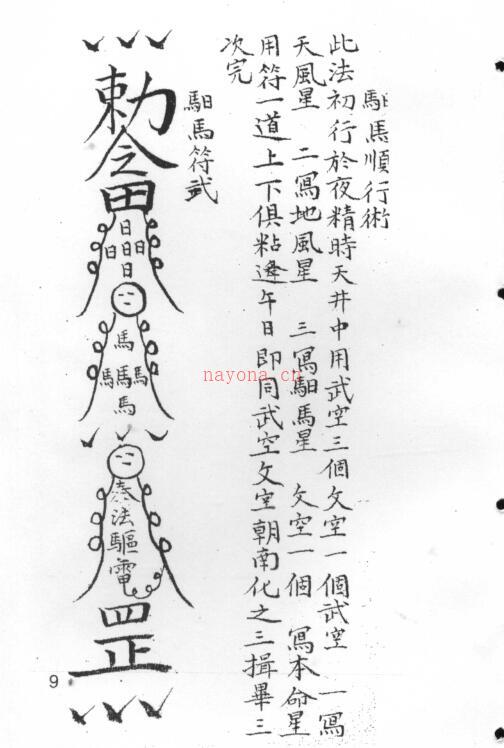 駔馬順行術
此法初行於夜精時天井中用武空三個文空一個武空 一寫
天風星 二寫地風星 三寫駔馬星 文空一個 寫本命星
用符一道上下俱粘逢午日即同武空文空朝南化之三揖畢三
次完
駔馬符武
勅令田
日
日日日
日
馬
馬馬馬
馬
奉法驅電
罡
9
nayona.cn